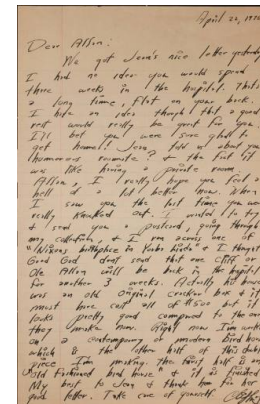 April 20, 197
Dear Allon:
We got Jean's nice letter yesterday
I had no idea you would spend
three weeks in the hospital. That's
a long time, flat on your back.
I had an idea though that a good
rest would really be great for you.
I'll bet you were sure glad to
get home! Jean told us about your
humorous roomate? & the first bit
was like having a private room
Allon, I really hope you feel a
hell of a lot better now. When
I saw you the last time you were
really knocked out. I wanted to try
& send you a postcard, going through
my collection, & I ran across one of
"Nixons birthplace in Yorba Linda" & I thought
Good God dont send that one Cliff or
Ole Allon will be back in the hospital
for another 3 weeks. Actually his house
was an old original cracker box & it
must have cost all of $500 but it
looks pretty good compared to the one
they make now. Right now Im working
on a contemporary or modern bird house
which is the other half of this
piece Im making, the first half is an
"Old fashioned bird house" & it is finished
My best to Jean & thank her for her
good letter. Take care of yourself
Cliff